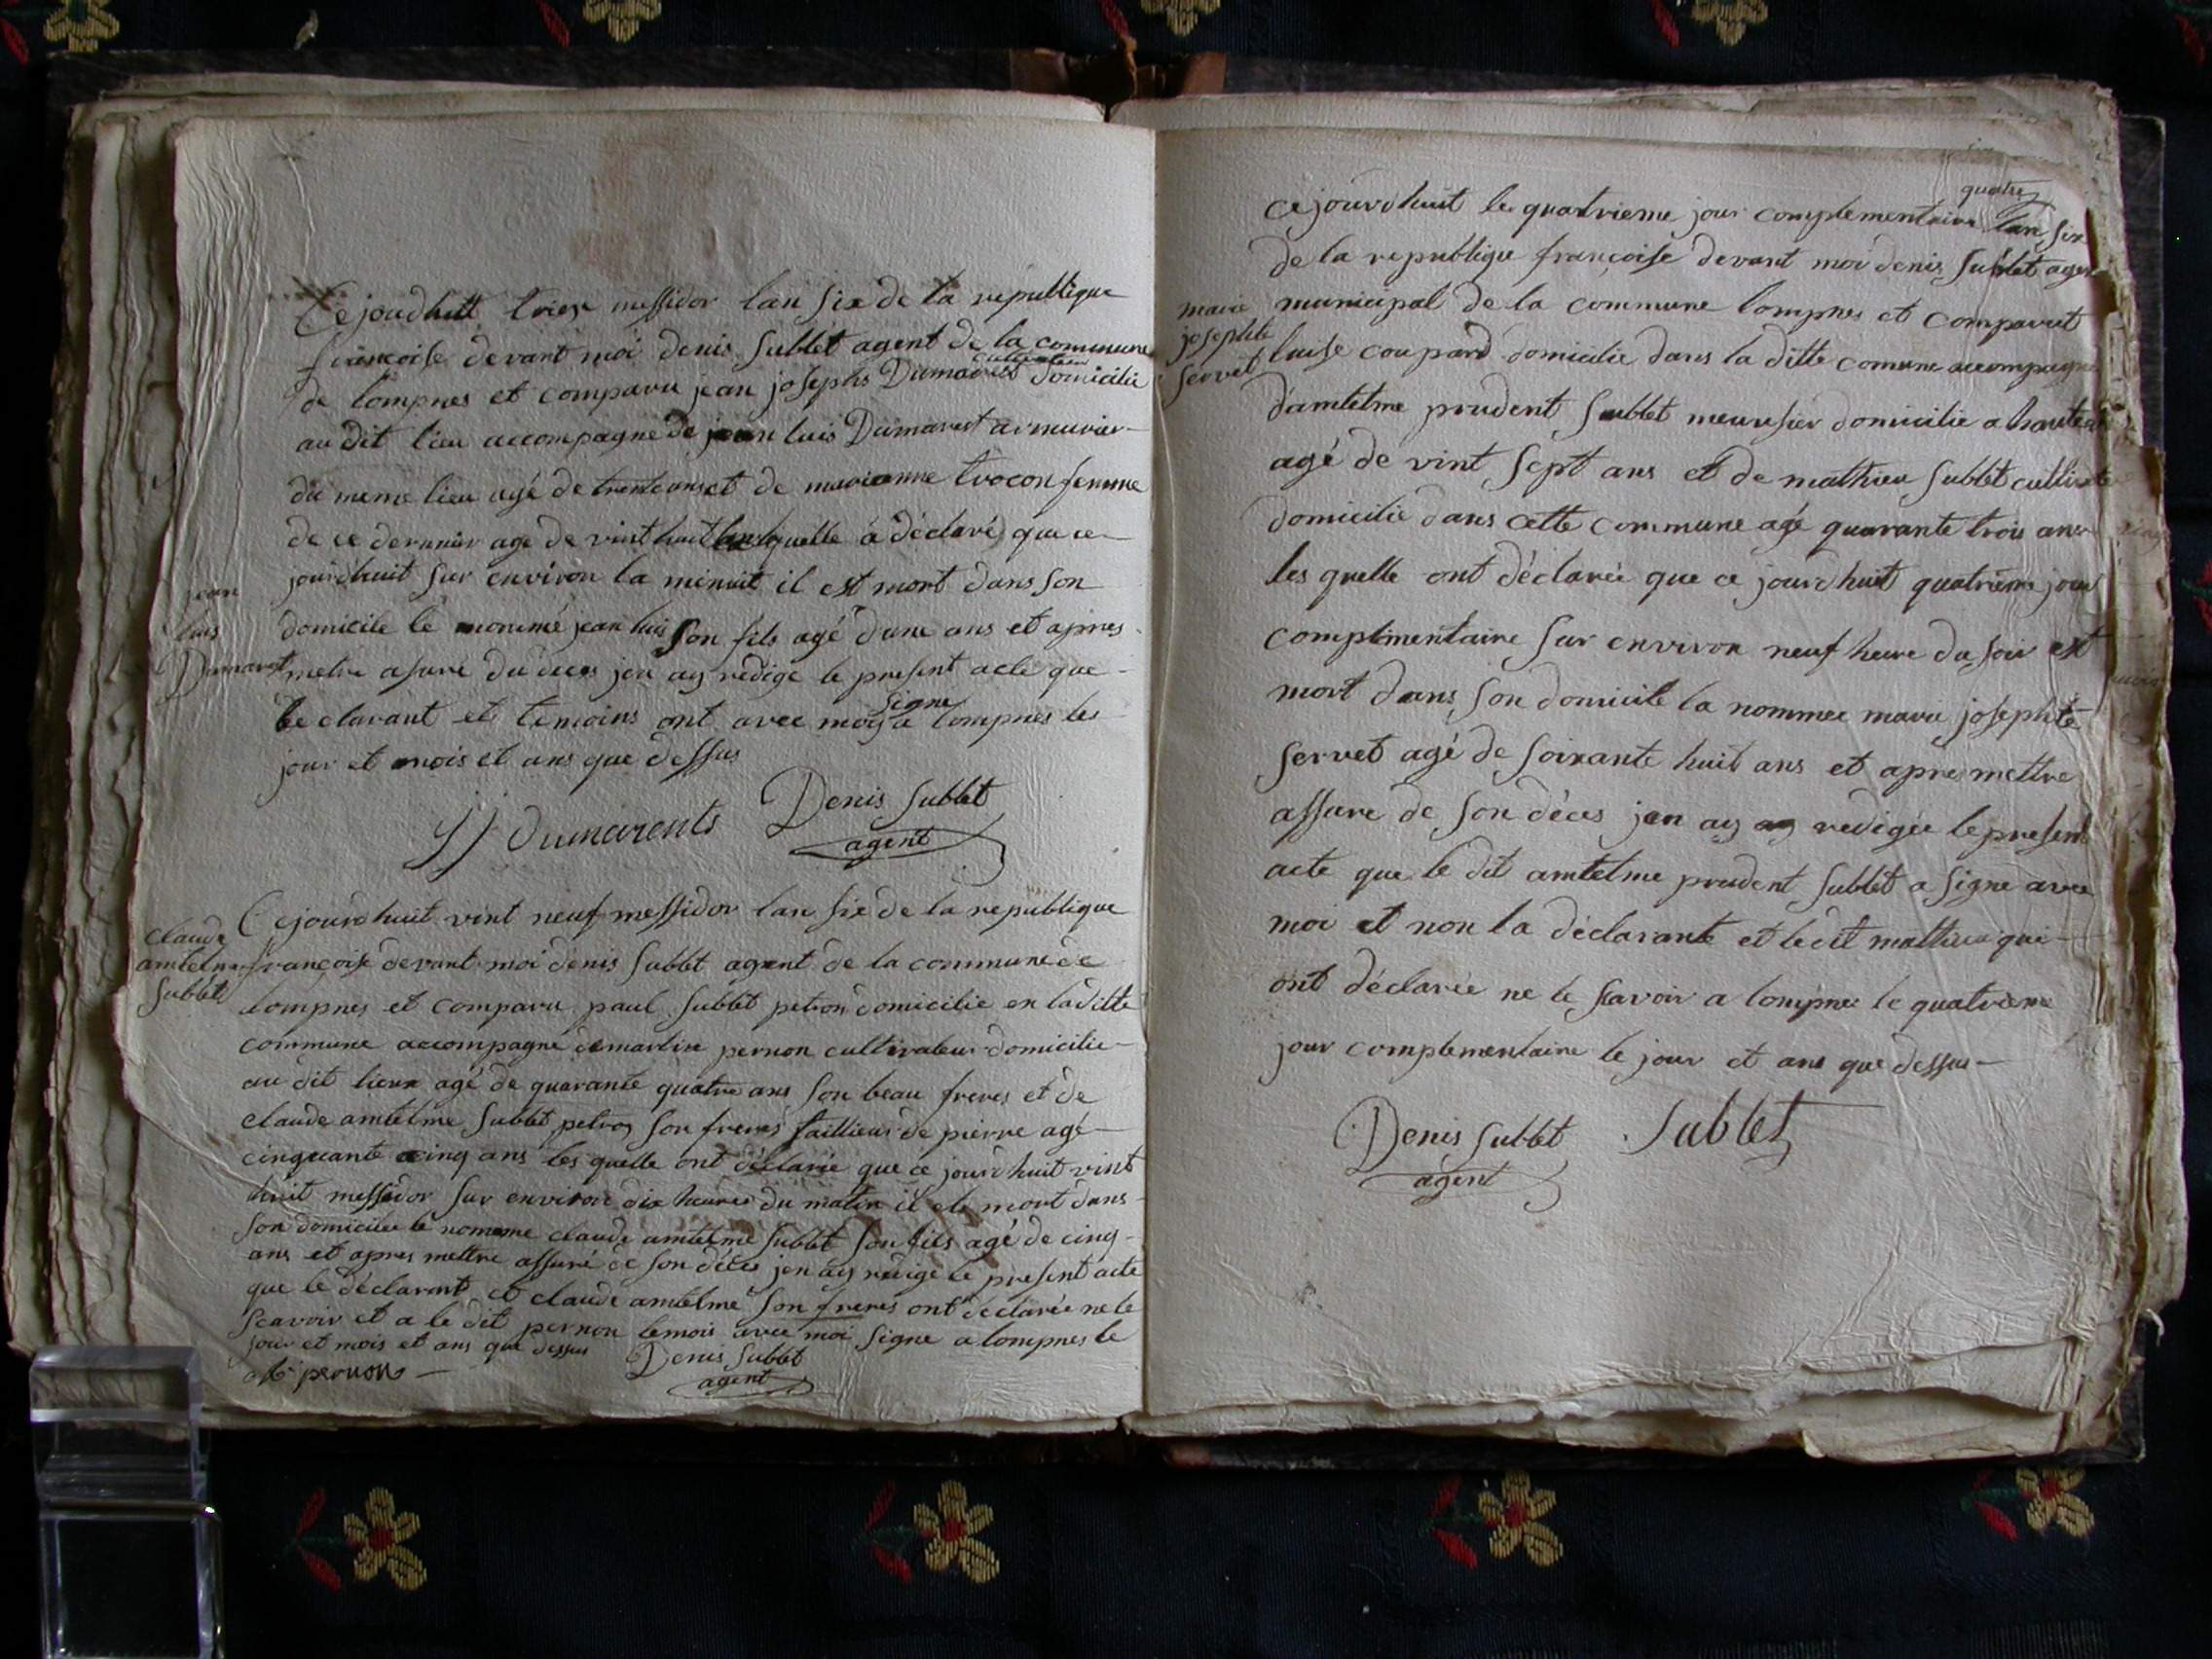 Ce joudhuit treise messidor lan six de la republique
francoise devant moi denis Sublet agent de la commune
cultivateur
de lompnes et comparu jean josephs Dumarest domicilie
au dit lieu accompagne de jean luis Dumarest armurier
du meme lieu agé de trente ans et de marianne trocon femme
de ce dernnier age de vint huit ans lquelle a déclaré que ce
jourdhuit sur environ la minuit il est mort dans son
jean
luis
Dumarest
domicile le nommé jean luis son fils agé dune ans et apres
metre asuré du déces jen ay redige le present acte que
signe
le clarant et temoins ont avec moy a lompnes les
jour et mois et ans que dessus
JJ Dumarests Denis Sublet
agent
Claude
amtelme
Sublet
Ce jourdhuit vint neuf messidor lan six de la republique
françoise devant moi denis Sublet agent de la commune de
lompnes et comparu paul Sublet petron domicilie en la ditte
commune accompagne de martin pernon cultivateur domicilie
au dit lieux agé de quarante quatre ans son beau freres et de
claude amtelme Sublet petron son freres taillieur de pierre agé
cinquante cinq ans les quelle ont déclarée que ce jourdhuit vint
huit messidor sur environ dix heures du matin il et mort dans
son domicilee le nomeme claude amtelme Sublet son fils agé de cinq
ans et apres mettre assuré de son déces jen ay redige le present acte
que le déclarant et claude amtelme son freres ont déclarée ne le
scavoir et a le dit pernon temois avec moi signe a lompnes le
jour et mois et ans que dessus Denis Sublet
pernon agent
quatre
ce jourdhuit le quatrieme jour complementaire lan six
de la republique françoise devant moi denis Sublet agent
marie
josephte
servet
municipal de la commune lompnes et comparut
luise coupard domicilie dans la ditte comune accompagne
d'amtelme prudent Sublet meunsier domicilie a hauteville
agé de vint sept ans et de mathieu Sublet cultivate
domicilie dans cette commune agé quarante trois ans
les quelle ont déclarée que ce jourdhuit quatrieme jour
complimentaire sur environ neuf heure du soir est
mort dans son domicile la nommee marie josephte
servet agé de soixante huit ans et apres mettre
assure de son déces jen ay redigée le present
acte que le dit amtelme prudent Sublet a signe avec
moi et non la déclarante et le dit mathieu qui
ont déclarée ne le scavoir a lompnes le quatrieme
jour complementaire le jour et ans que dessus
Denis Sublet Sublet
agent